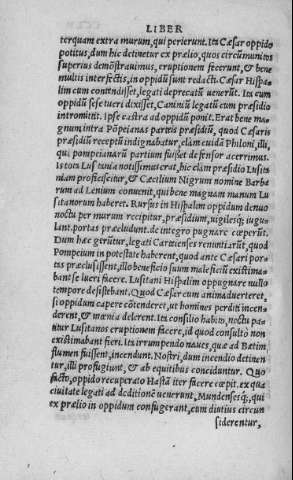 LIBER
terquam extra murum, qui perierunt. Ita Cæsar oppido
potitus, dum hic detinetur ex prælio, quos circummunitos
superius demõstrauimus, eruptionem fecerunt, & bene
multis interfectis, in oppidũ sunt redacti. Cæsar Hispa-
lim cum contendisset, legati deprecatũ uenerũt. Ita cum
oppidũ sese tueri dixisset, Caniniũ legatũ cum præsidio
intromittit. Ipse castra ad oppidũ ponit. Erat bene ma-
gnum intra Põpeianas partes præsidiũ, quod Cæsaris
præsidiũ receptũ indignabatur, clam cuidã Philoni, illi,
qui pompeianarũ partium fuisset defensor acerrimus.
Is tota Lusitania notissimus erat, hic clam præsidio Lusita-
niam proficiscitur, & Cæcilium Nigrum nomine Barba
rum ad Lenium conuenit, qui bene magnam manum Lu
sitanorum haberet. Rursus in Hispalim oppidum denuo
noctu per murum recipitur, præsidium, uigilesq; iugu-
lant. portas præcludunt. de integro pugnare cœperũt.
Dum hæc gerũtur, legati Carteienses renuntiarũt, quod
Pompeium in potestate haberent, quod ante Cæsari por-
tas præclusissent, illo beneficio suum maleficiũ existima-
bant se lucri facere. Lusitani Hispalim oppugnare nullo
tempore desistebant. Quod Cæsar cum animaduerteret,
si oppidum capere cõtenderet, ut homines perditi incen-
derent, & mœnia delerent. Ita consilio habito, noctu pa-
titur Lusitanos eruptionem facere, id quod consulto non
existimabant fieri. Ita irrumpendo naues, quæ ad Bætim
flumen fuissent, incendunt. Nostri, dum incendio detinen
tur, illi profugiunt, & ab equitibus conciduntur. Quo
facto, oppido recuperato Hastã iter facere cœpit. ex qua
ciuitate legati ad deditionẽ uenerunt, Mundensesq; qui
ex prælio in oppidum confugerant, cum diutius circun
siderentur,